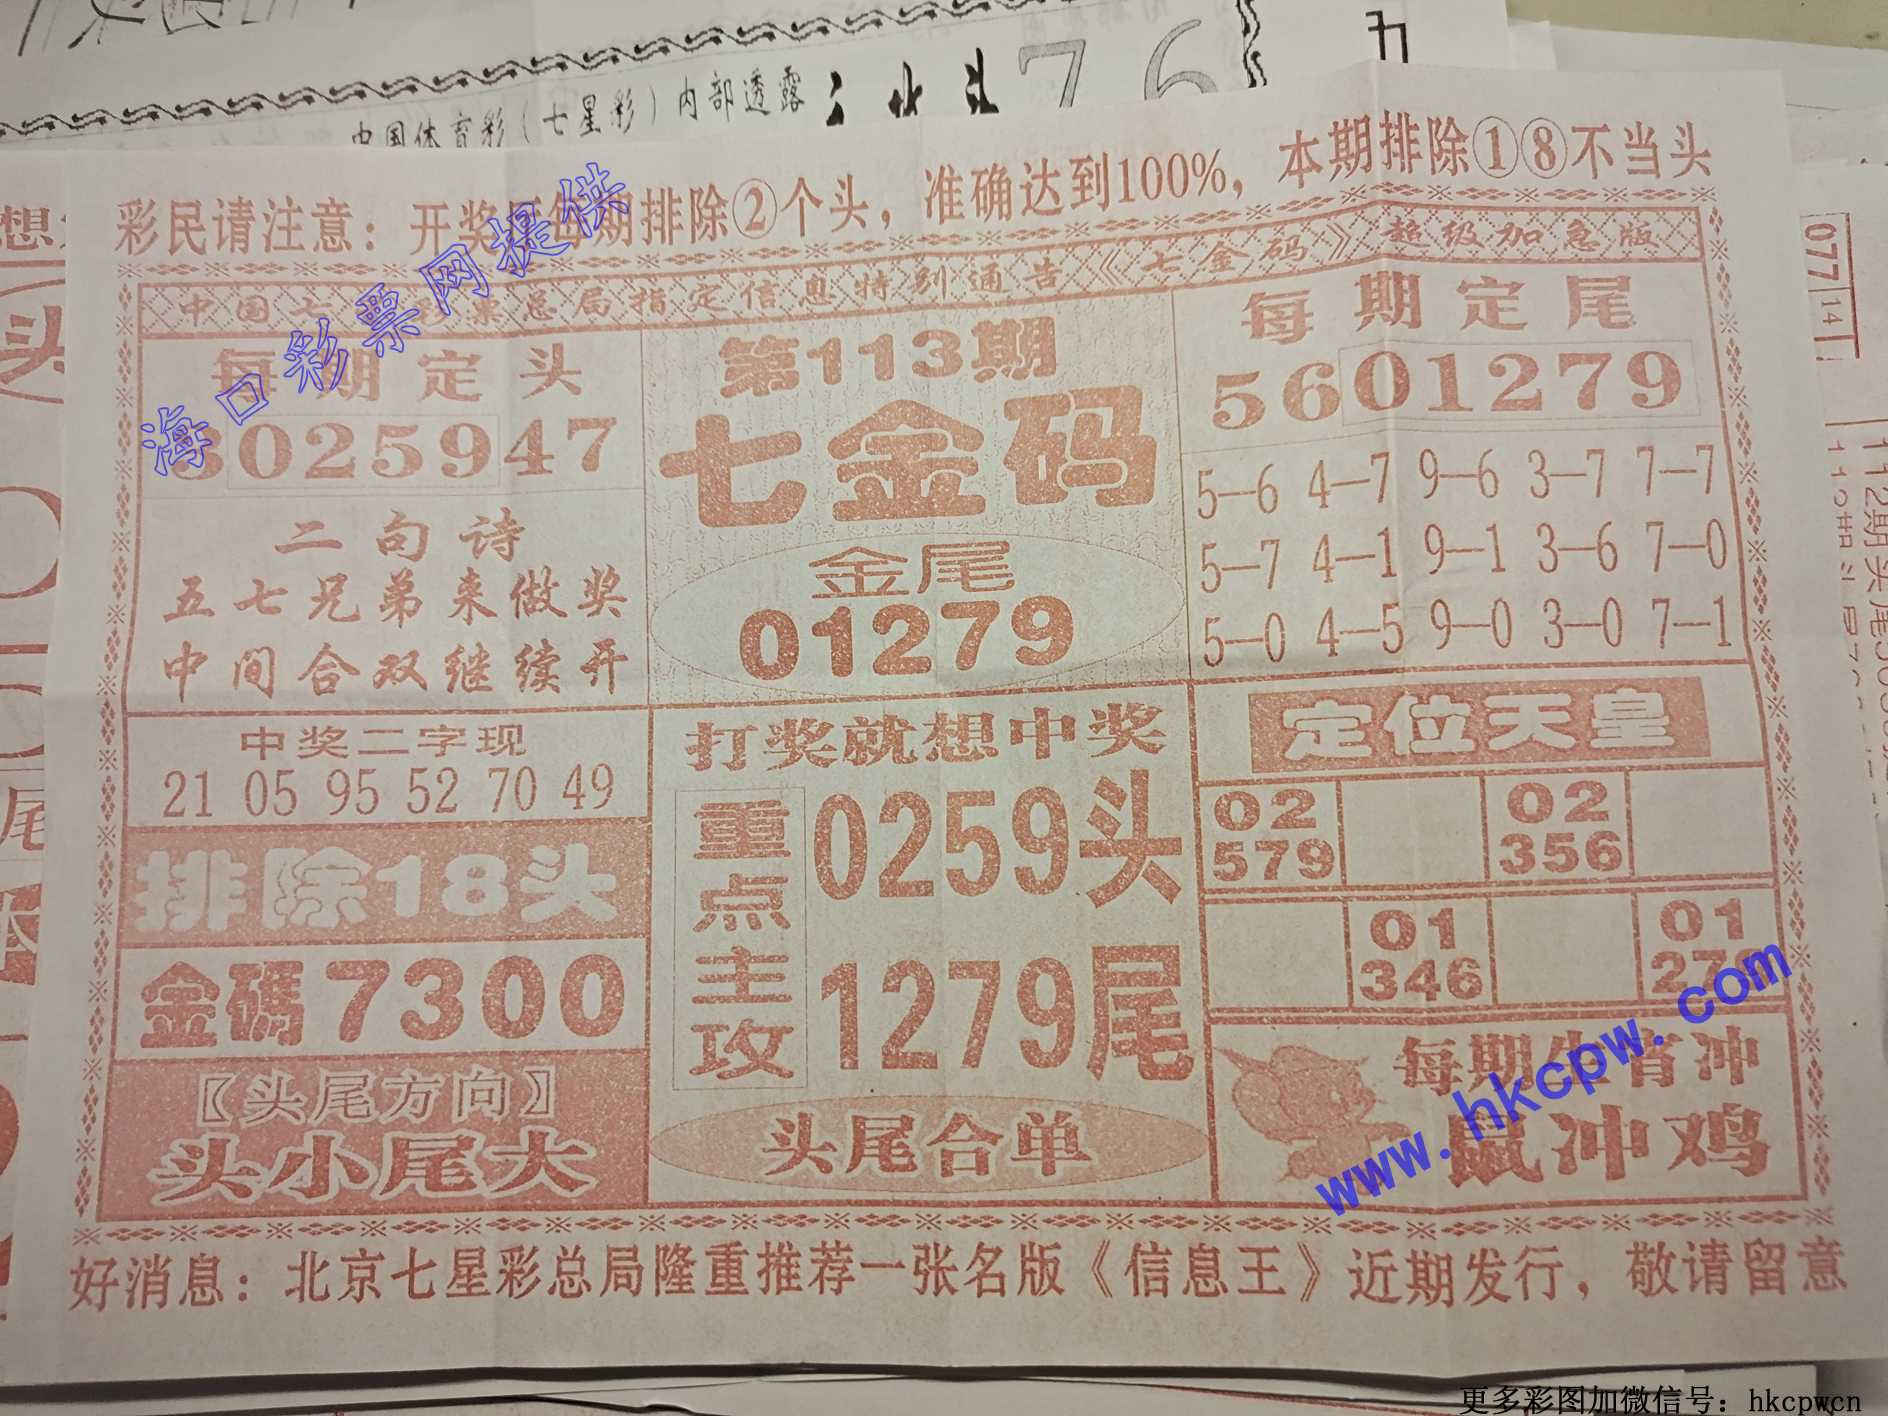 中国体育彩（七星彩）内部透露
76
彩民请注意：开奖 每期排除②个头，准确达到100%，本期排除①⑧不当头
中国七 总局指定信息特别通告《七金码》超级加急版
每期定头
8025947
二句诗
五七兄弟来做奖
中间合双继续开
第113期
七金码
金尾
01279
每期定尾
5601279
5—6 4—7 9—6 3—7 7—7
5—7 4—1 9—1 3—6 7—0
5—0 4—5 9—0 3—0 7—1
中奖二字现
21 05 95 52 70 49
排除18头
金碼7300
【头尾方向】
头小尾大
打奖就想中奖
重点主攻
0259头
1279尾
头尾合单
定位天皇
02 02
579 356
01 01
346 27
每期生肖冲
鼠冲鸡
好消息：北京七星彩总局隆重推荐一张名版《信息王》近期发行，敬请留意
海口彩票网提供
www.hkcpw.com
077
14
112期头尾
更多彩图加微信号：hkcpwcn